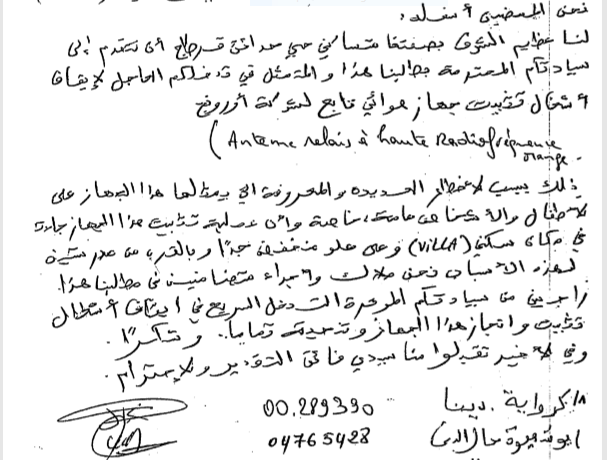 نحن الممضين أسفله:
لنا عظيم الشرف بصفتنا متساكني حي حدائق قرطاج أن نتقدم إلى
سيادتكم المحترمة بطلبنا هذا والمتمثل في تدخلكم العاجل لإيقاف
أشغال تثبيت جهاز هوائي تابع لشركة أورونج
(Antenne relais à haute Radiofréquence
orange.
ذلك بسبب الأخطار العديدة والمعروفة التي يمثلها هذا الجهاز على
الأطفال والأشخاص عامة، خاصة وأن عملية تثبيت هذا الجهاز جارية
في مكان سكني (VILLA) وعلى علو منخفض جدًا وبالقرب من
لهذه الأسباب نحن ملاك وأجراء متضامنين في مطلبنا هذا.
راجين من سيادتكم الموقرة التدخل السريع في إيقاف أشغال
تثبيت وإنجاز هذا الجهاز وتنحيته تماما. وشكرًا.
وفي الأخير تقبلوا منا سيدي فائق التقدير والإحترام.
00.289390
04765428